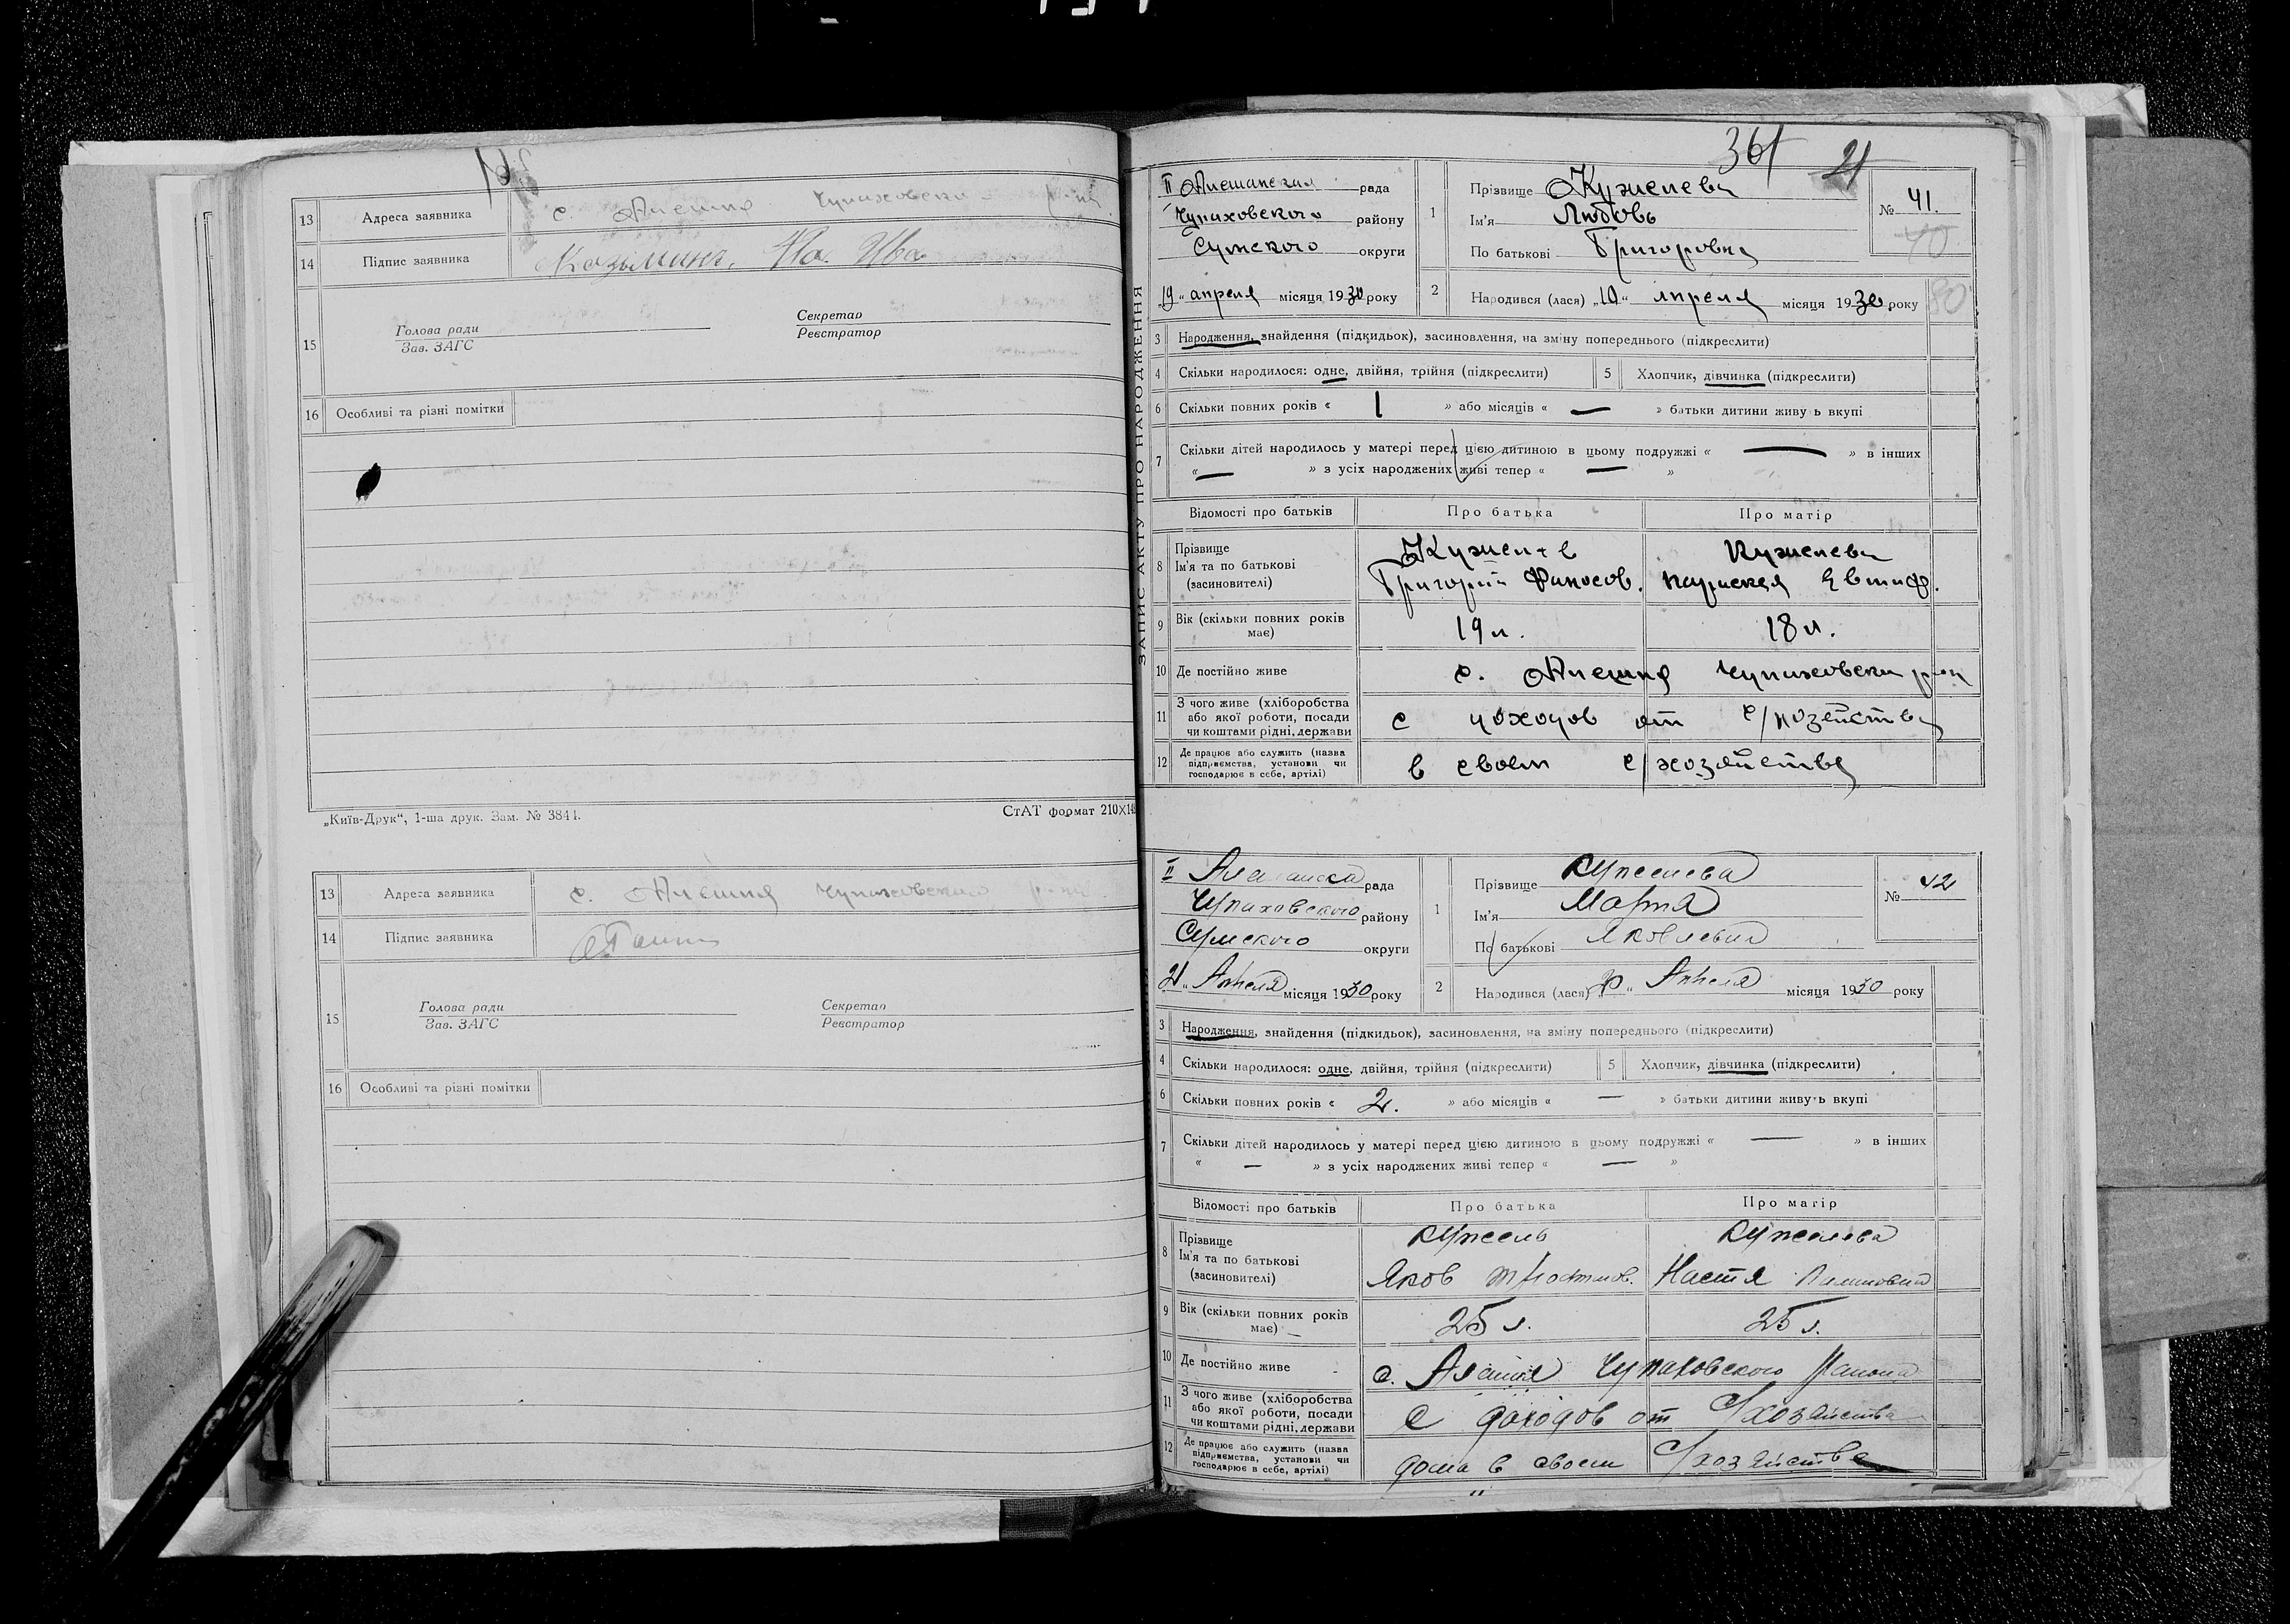 13 Адреса заявника с. Алешня Чупаховског р-на
14 Підпис заявника
15 Голова ради
Зав. ЗАГС
Секретар
Реєстратор
16 Особливі та різні помітки
„Київ-Друк“, 1-ша друк. Зам. № 3841.
СтАТ формат 210Х14
13 Адреса заявника с. Алешня Чупаховского р-на
14 Підпис заявника
15 Голова ради
Зав. ЗАГС
Секретар
Реєстратор
16 Особливі та різні помітки
361 21
ЗАПИС АКТУ ПРО НАРОДЖЕННЯ
II Алешанская рада
Чупаховского району
Сумского округи
19 „ апреля місяця 1930 року
1 Прізвище Кужелева
Ім'я Любовь
По батькові Григоровна
№ 41.
40
2 Народився (лася) „10“ апреля місяця 1930 року
3 Народження, знайдення (підкидьок), засиновлення, на зміну попереднього (підкреслити)
4 Скільки народилося: одне, двійня, трійня (підкреслити) 5 Хлопчик, дівчинка (підкреслити)
6 Скільки повних років « 1 » або місяців « — » батьки дитини живу ь вкупі
7 Скільки дітей народилось у матері перед цією дитиною в цьому подружжі « — » в інших
« — » з усіх народжених живі тепер « — »
Відомості про батьків Про батька Про матір
8 Прізвище
Ім'я та по батькові
(засновителі)
Кужелев Кужелева
Григорий
9 Вік (скільки повних років
має)
19 л. 18 л.
10 Де постійно живе с. Алешня Чупаховск
11 З чого живе (хліборобства
або якої роботи, посади
чи коштами рідні, держави
с доходов от с/хозяйства
12 Де працює або служить (назва
підприємства, установи чи
господарює в себе, артілі)
в своем с/хозяйстве
II рада
Чупаховского району
Сумского округи
21 „ Апреля місяця 1930 року
1 Прізвище Кужелева
Ім'я Марта
По батькові Яковлевна
№ 42
2 Народився (лася) „ Апреля місяця 1930 року
3 Народження, знайдення (підкидьок), засиновлення, на зміну попереднього (підкреслити)
4 Скільки народилося: одне, двійня, трійня (підкреслити) 5 Хлопчик, дівчинка (підкреслити)
6 Скільки повних років « 2. » або місяців « — » батьки дитини живуть вкупі
7 Скільки дітей народилось у матері перед цією дитиною в цьому подружжі « — » в інших
« — » з усіх народжених живі тепер « — »
Відомості про батьків Про батька Про матір
8 Прізвище
Ім'я та по батькові
(засиновителі)
Кужель Кужелева
Яков Настя
9 Вік (скільки повних років
має)
25 л. 25 л.
10 Де постійно живе с. Алешня Чупаховского района
11 З чого живе (хліборобства
або якої роботи, посади
чи коштами рідні, держави
с доходов от с/хозяйства
12 Де працює або служить (назва
підприємства, установи чи
господарює в себе, артілі)
дома в своем с/хозяйстве